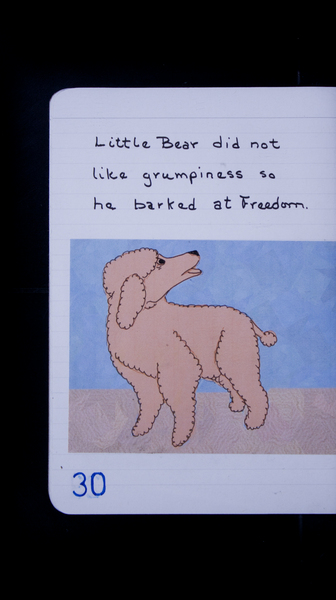 Little Bear did not
like grumpiness so
he barked at Freedom.
30